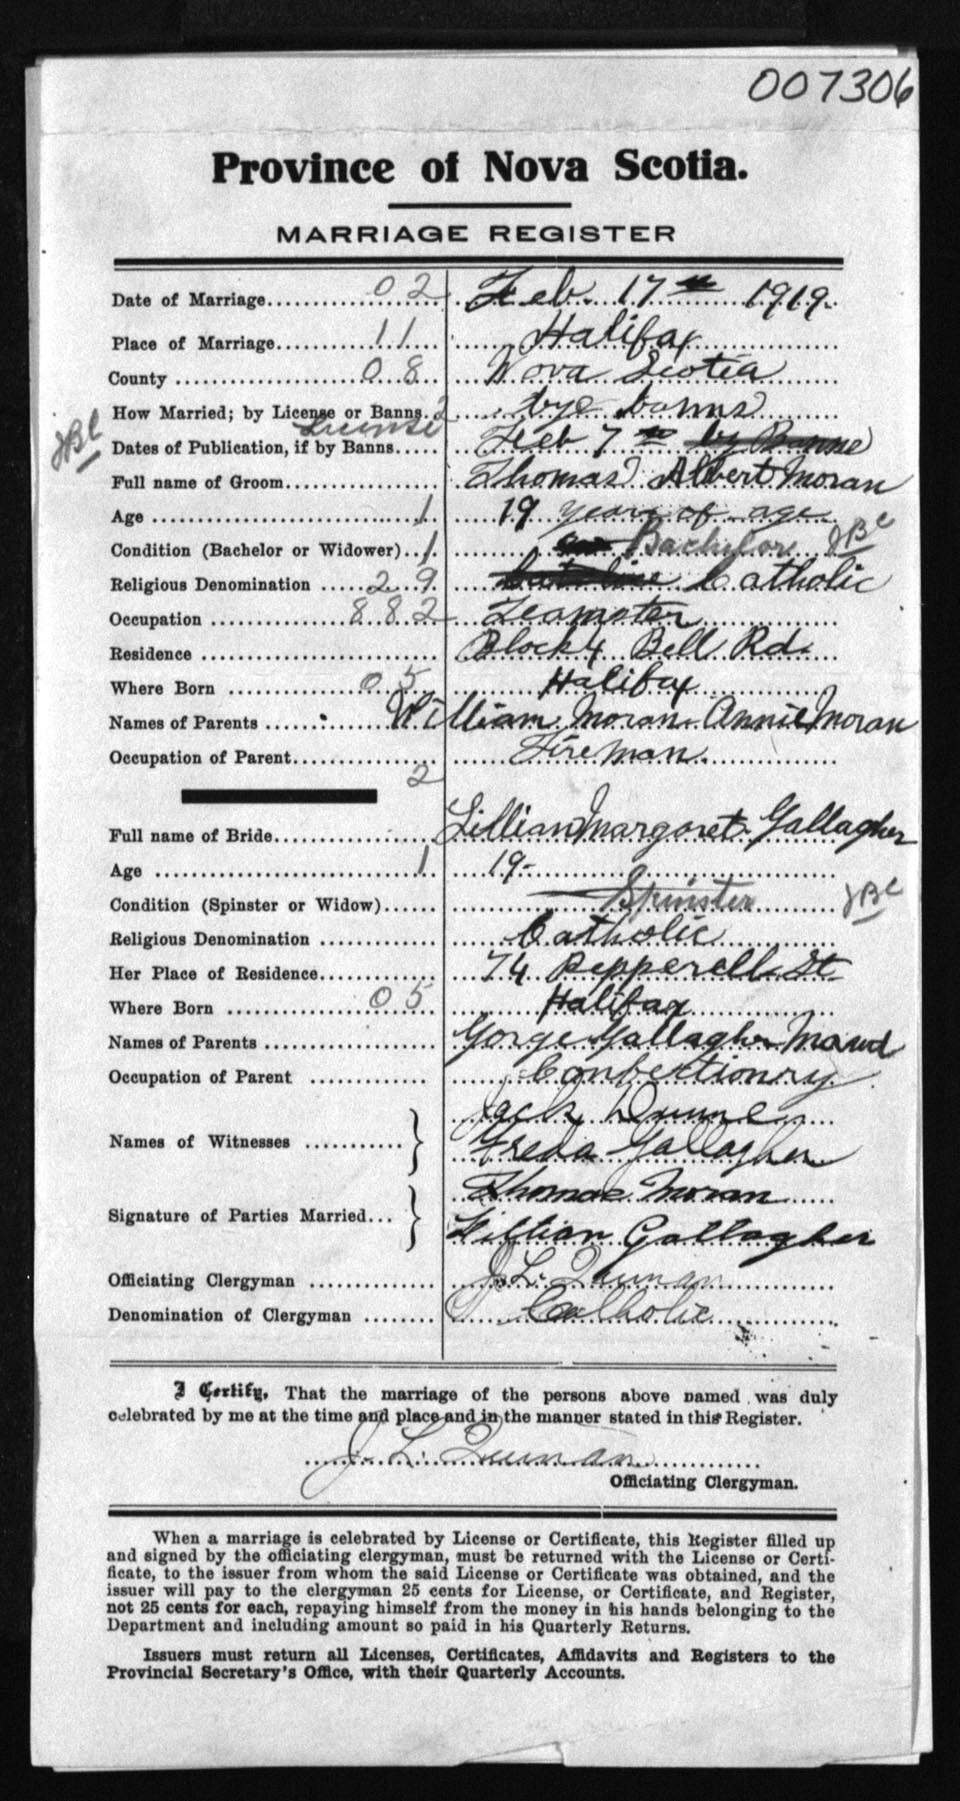 007306
Province of Nova Scotia.
MARRIAGE REGISTER
Date of Marriage 02 Feb. 17th 1919.
Place of Marriage 11 Halifax
County 08 Nova Scotia
How Married; by License or Banns. 2 bye banns
License
JBC Dates of Publication, if by Banns Feb 7th by Banns
Full name of Groom Thomas Albert Moran
Age 1 19 years of age
Condition (Bachelor or Widower) 1 Bachelor JBC
Religious Denomination 29 Catholic
Occupation 882 Teamster
Residence Block 4 Bell Rd.
Where Born 05 Halifax
Names of Parents William Moran Annie Moran
Occupation of Parent Fireman.
2
Full name of Bride Lillian Margaret Gallagher
Age 1 19-
Condition (Spinster or Widow) Spinster JBC
Religious Denomination Catholic
Her Place of Residence 74 Pepperell St
Where Born 05 Halifax
Names of Parents Gorge Gallagher Maud
Occupation of Parent Confectionry
Names of Witnesses Jack Dunne
Freda Gallagher
Signature of Parties Married Thomas Moran
Lillian Gallagher
Officiating Clergyman J. L. Quinan
Denomination of Clergyman Catholic
I Certify, That the marriage of the persons above named was duly
celebrated by me at the time and place and in the manner stated in this Register.
J. L. Quinan
Officiating Clergyman.
When a marriage is celebrated by License or Certificate, this Register filled up
and signed by the officiating clergyman, must be returned with the License or Certi-
ficate, to the issuer from whom the said License or Certificate was obtained, and the
issuer will pay to the clergyman 25 cents for License, or Certificate, and Register,
not 25 cents for each, repaying himself from the money in his hands belonging to the
Department and including amount so paid in his Quarterly Returns.
Issuers must return all Licenses, Certificates, Affidavits and Registers to the
Provincial Secretary's Office, with their Quarterly Accounts.